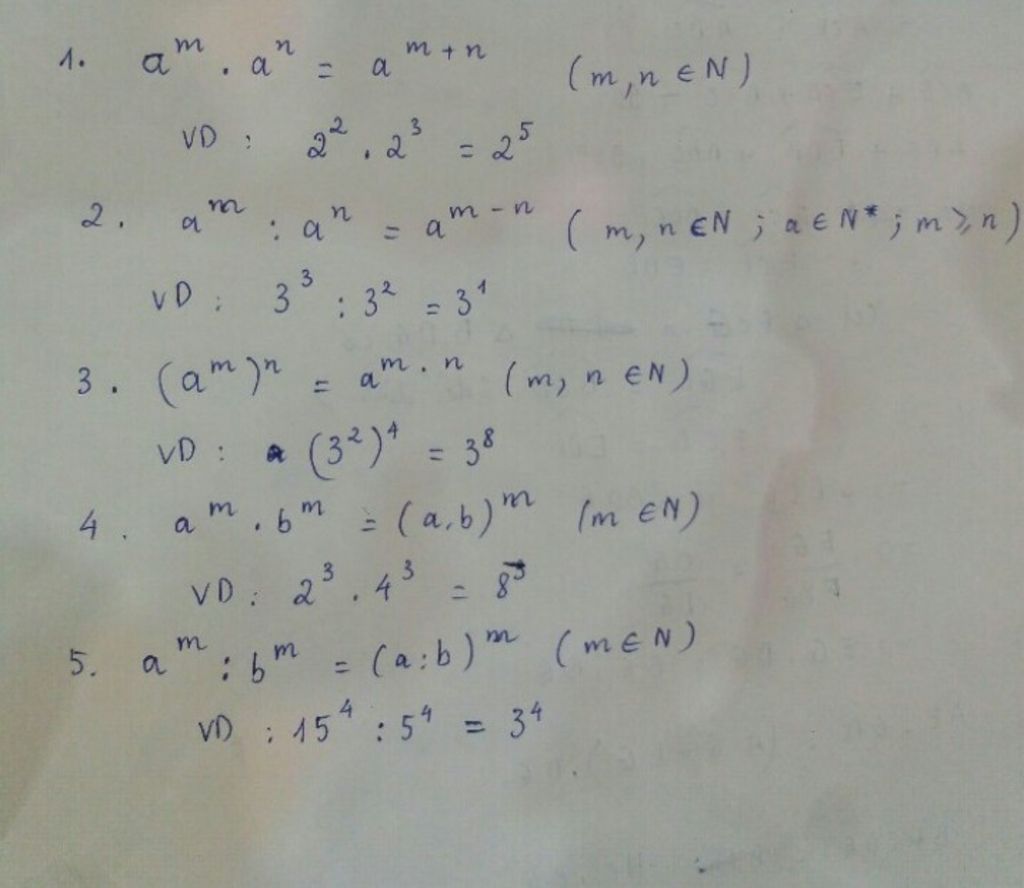 1. a^m . a^n = a^{m+n} (m, n ∈ N)
VD : 2^2 . 2^3 = 2^5
2. a^m : a^n = a^{m-n} ( m, n ∈ N ; a ∈ N* ; m ⩾ n )
VD : 3^3 : 3^2 = 3^1
3. (a^m)^n = a^{m.n} (m, n ∈ N)
VD : (3^2)^4 = 3^8
4. a^m . b^m = (a.b)^m (m ∈ N)
VD : 2^3 . 4^3 = 8^3
5. a^m : b^m = (a:b)^m (m ∈ N)
VD : 15^4 : 5^4 = 3^4